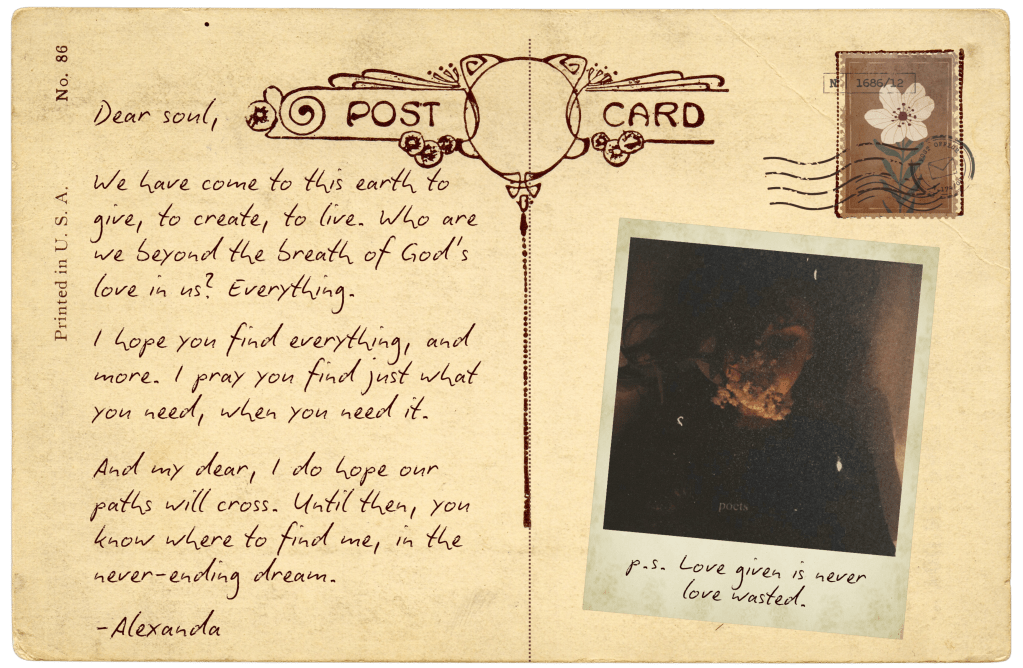 No. 86
Printed in U. S. A.
POST CARD
Nº 1686/12
Dear soul,
We have come to this earth to
give, to create, to live. Who are
we beyond the breath of God's
love in us? Everything.
I hope you find everything, and
more. I pray you find just what
you need, when you need it.
And my dear, I do hope our
paths will cross. Until then, you
know where to find me, in the
never-ending dream.
-Alexanda
poets
p.s. Love given is never
love wasted.